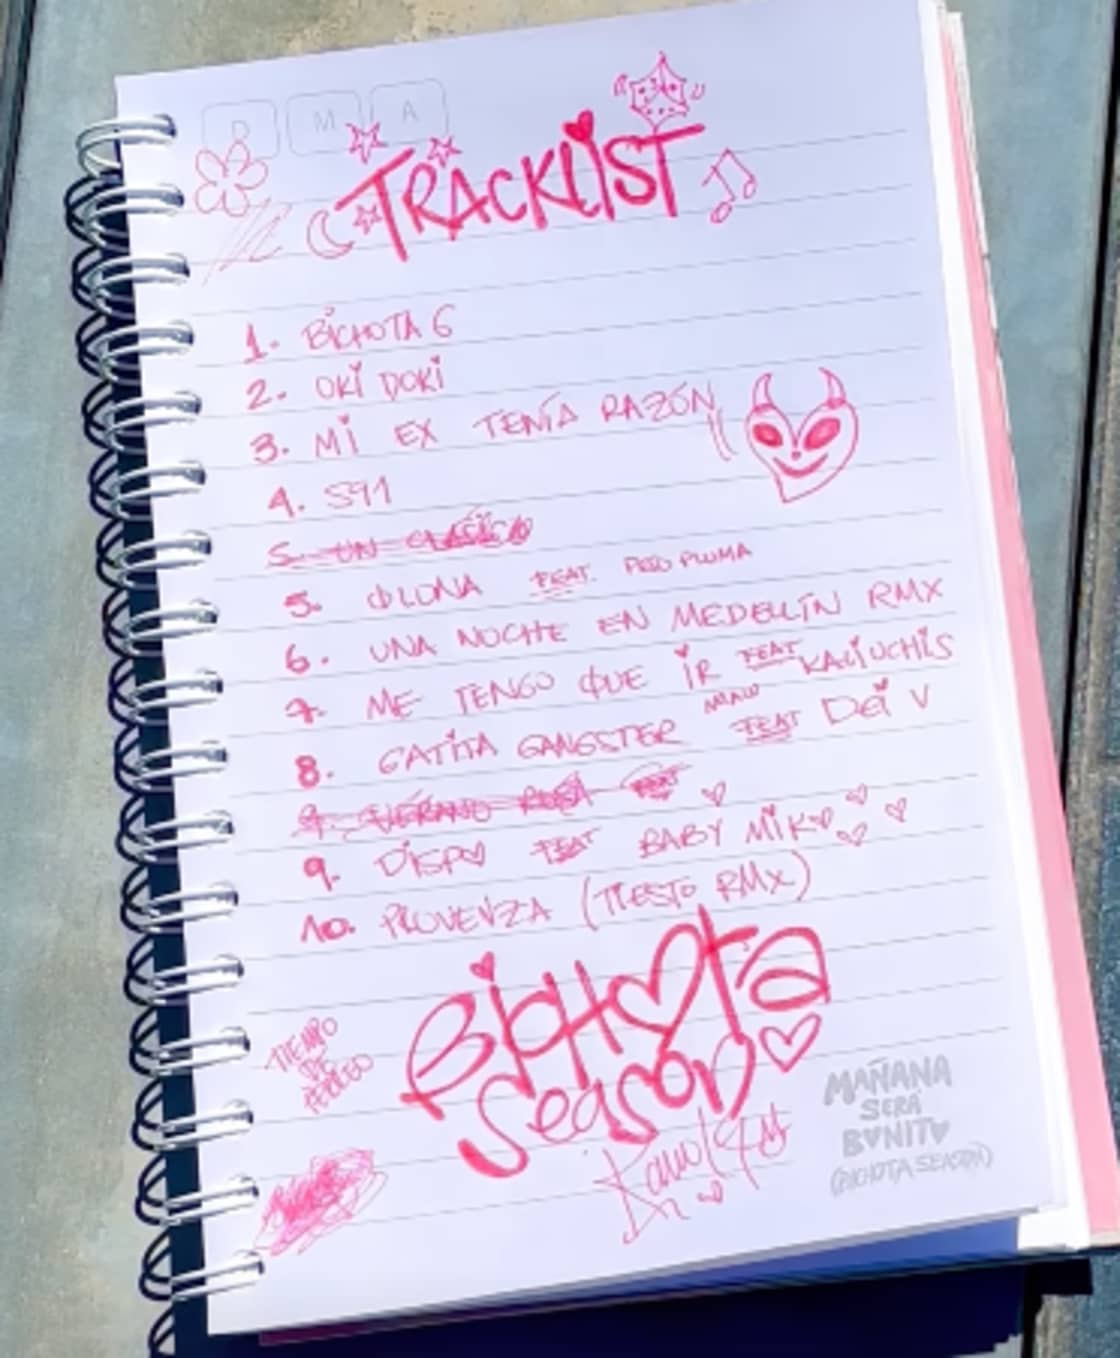 D M A
TRACKLIST
1. BICHOTA G
2. OKI DOKI
3. MI EX TENÍA RAZÓN
4. S91
5. UN CLÁSICO
5. QLONA FEAT. PESO PLUMA
6. UNA NOCHE EN MEDELLÍN RMX
7. ME TENGO QUE IR FEAT KALI UCHIS
8. GATITA GANGSTER FEAT DEI V
9. VERANO ROSA FEAT
9. DISPO FEAT BABY MIKO
10. PROVENZA (TIESTO RMX)
BICHOTA
SEASON
TIEMPO
DE
MAÑANA
SERÁ
BONITO
(BICHOTA SEASON)